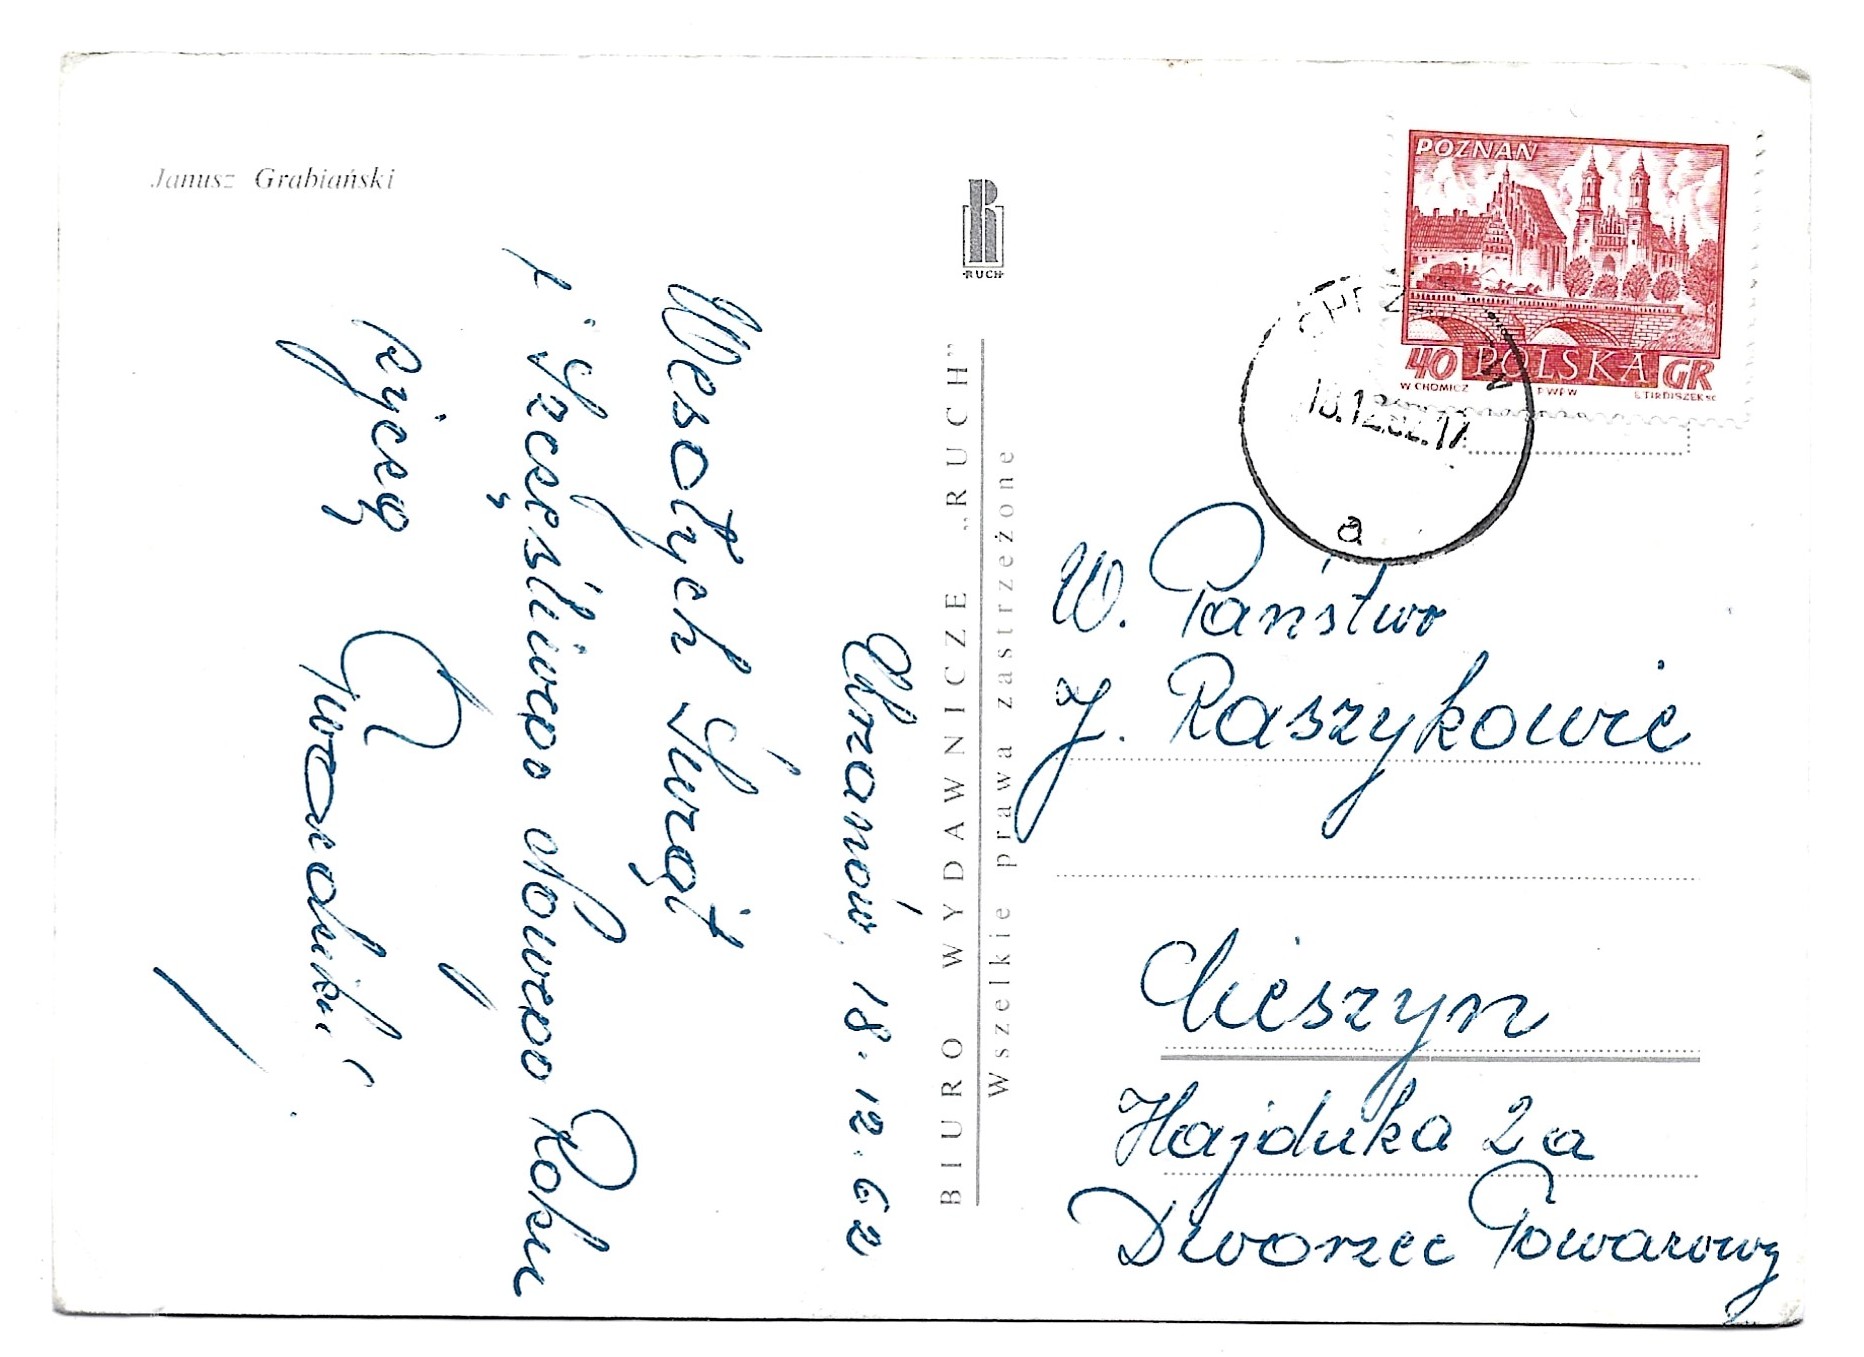 Janusz Grabiański
Chrzanów, 18.12.62
Wesołych Świąt
i Szczęśliwego Nowego Roku
życzą
BIURO WYDAWNICZE „RUCH”
Wszelkie prawa zastrzeżone
RUCH
POZNAŃ
40 POLSKA GR
W CHOMICZ PWPW E.TIRDISZEK SC
18.12.62.17
a
W. Państwo
J. Raszykowie
Cieszyn
Hajduka 2a
Dworzec Towarowy